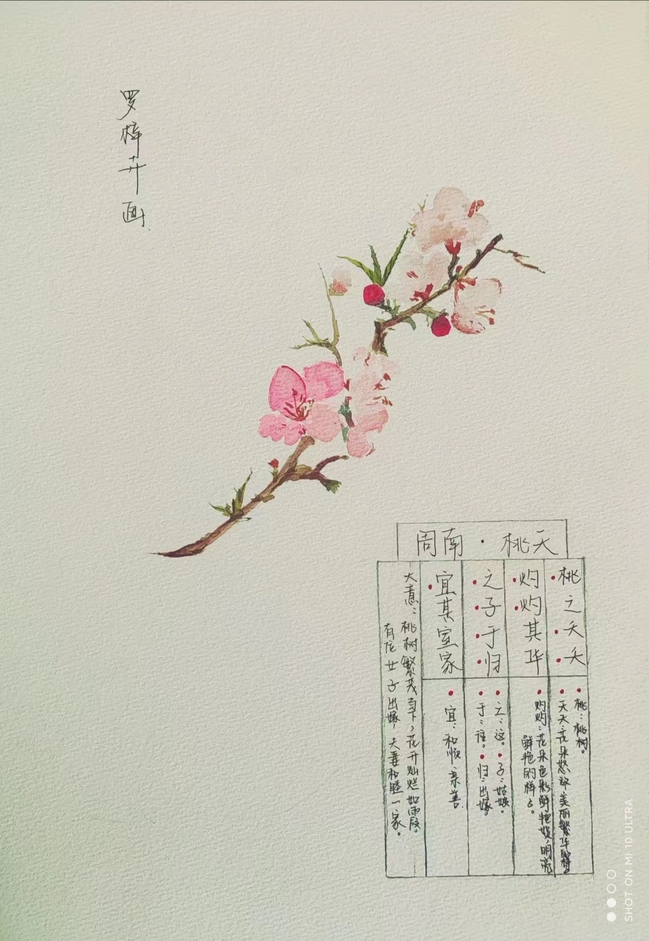 罗梓卉画
周南·桃夭
桃之夭夭
灼灼其华
之子于归
宜其室家
桃：桃树。
夭夭：花朵怒放，美丽繁华
灼灼：花朵色彩鲜艳 明亮
鲜艳的样子。
之：这。子：姑娘。
于：往。归：出嫁
宜：和顺，亲善
大意：桃树繁茂 花开灿烂如
有位女子出嫁，夫妻和睦一家。
SHOT ON MI 10 ULTRA